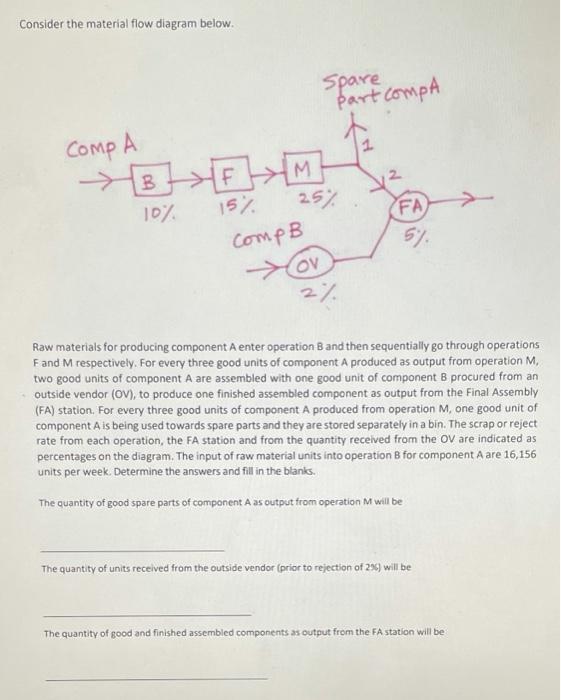 Consider the material flow diagram below.
Spare
Part compA
Comp A
1
B
F
M
2
10%
15%
25%
FA
CompB
5%
OV
2%
Raw materials for producing component A enter operation B and then sequentially go through operations
F and M respectively. For every three good units of component A produced as output from operation M,
two good units of component A are assembled with one good unit of component B procured from an
outside vendor (OV), to produce one finished assembled component as output from the Final Assembly
(FA) station. For every three good units of component A produced from operation M, one good unit of
component A is being used towards spare parts and they are stored separately in a bin. The scrap or reject
rate from each operation, the FA station and from the quantity received from the OV are indicated as
percentages on the diagram. The input of raw material units into operation B for component A are 16,156
units per week. Determine the answers and fill in the blanks.
The quantity of good spare parts of component A as output from operation M will be
The quantity of units received from the outside vendor (prior to rejection of 2%) will be
The quantity of good and finished assembled components as output from the FA station will be